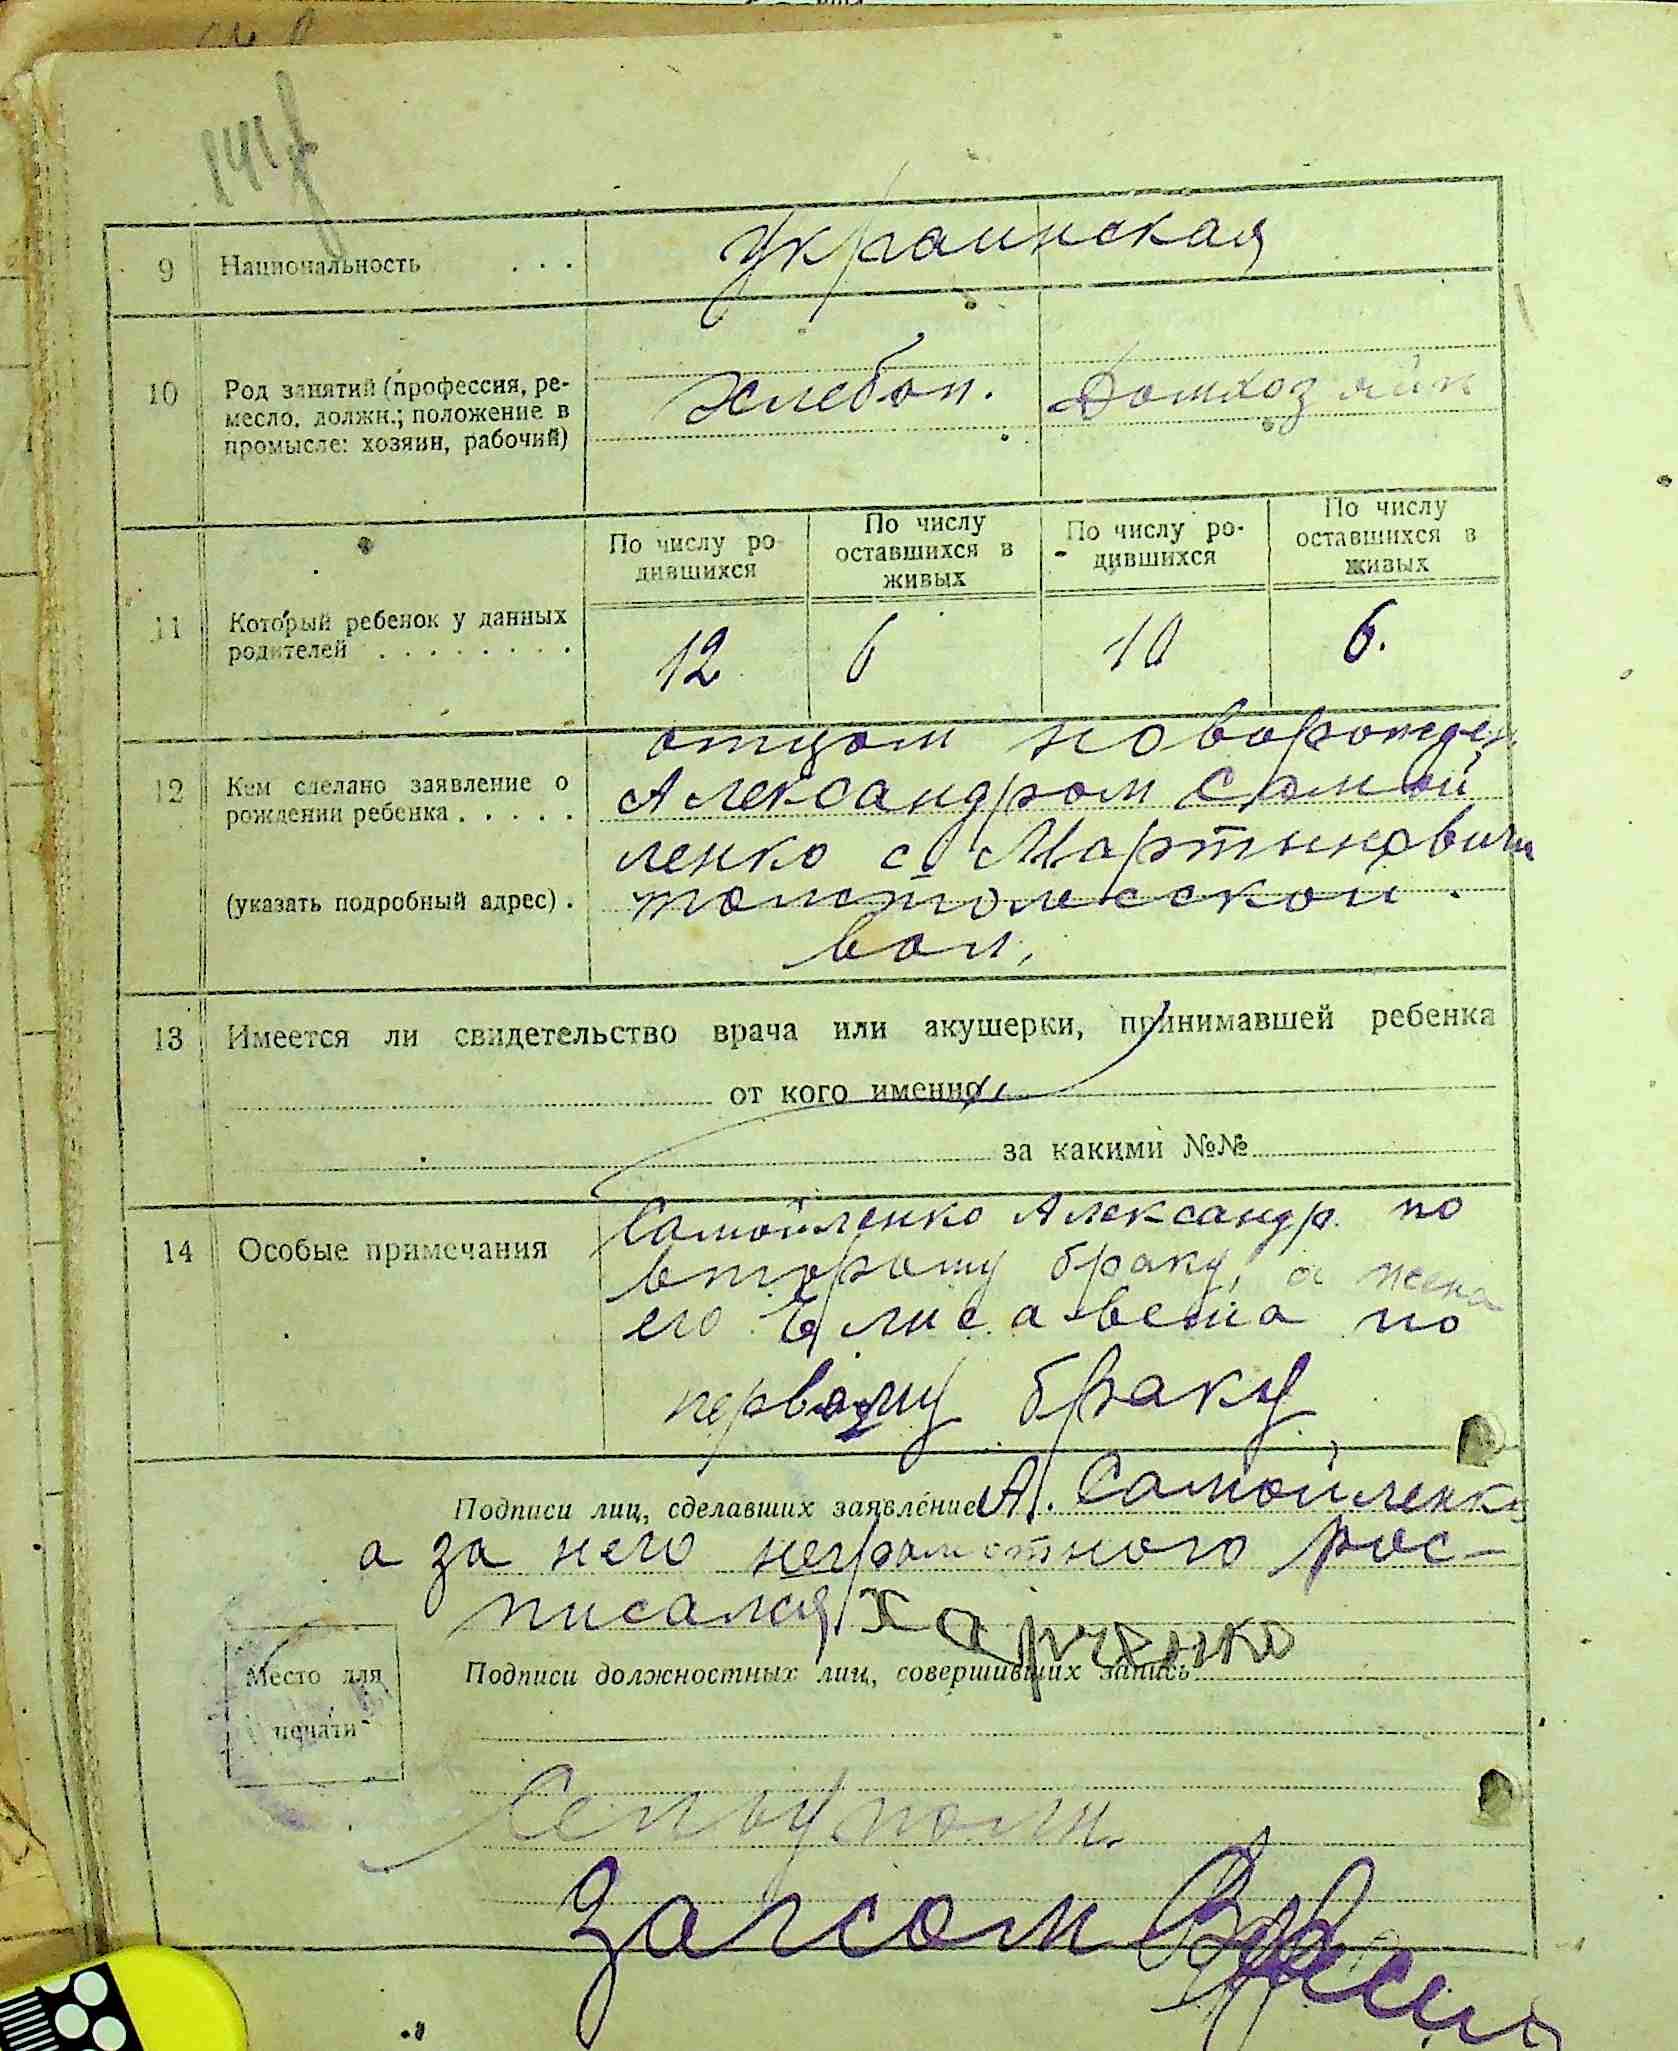 9 Национальность . . . Украинская
10 Род занятий (профессия, ре-
месло, должн.; положение в
промысле: хозяин, рабочий)
Хлебоп. Домхозяйк
По числу ро-
дившихся
По числу
оставшихся в
живых
По числу ро-
дившихся
По числу
оставшихся в
живых
11 Который ребенок у данных
родителей . . . . . . . .
12 6 10 6.
отцом новорожден
12 Кем сделано заявление о
рождении ребенка . . . . .
Александром Самой
ленко с Мартынович
(указать подробный адрес) .
толстолесской
вол.
13 Имеется ли свидетельство врача или акушерки, принимавшей ребенка
от кого именно
за какими №№
14 Особые примечания
Самойленко Александр по
второму браку, а жена
его Елисавета по
первому браку
Подписи лиц, сделавших заявление А. Самойленко
а за него неграмотного рос-
писался Харченко
Подписи должностных лиц, совершивших запись
Место для
печати
Сельуполн.
Загсом